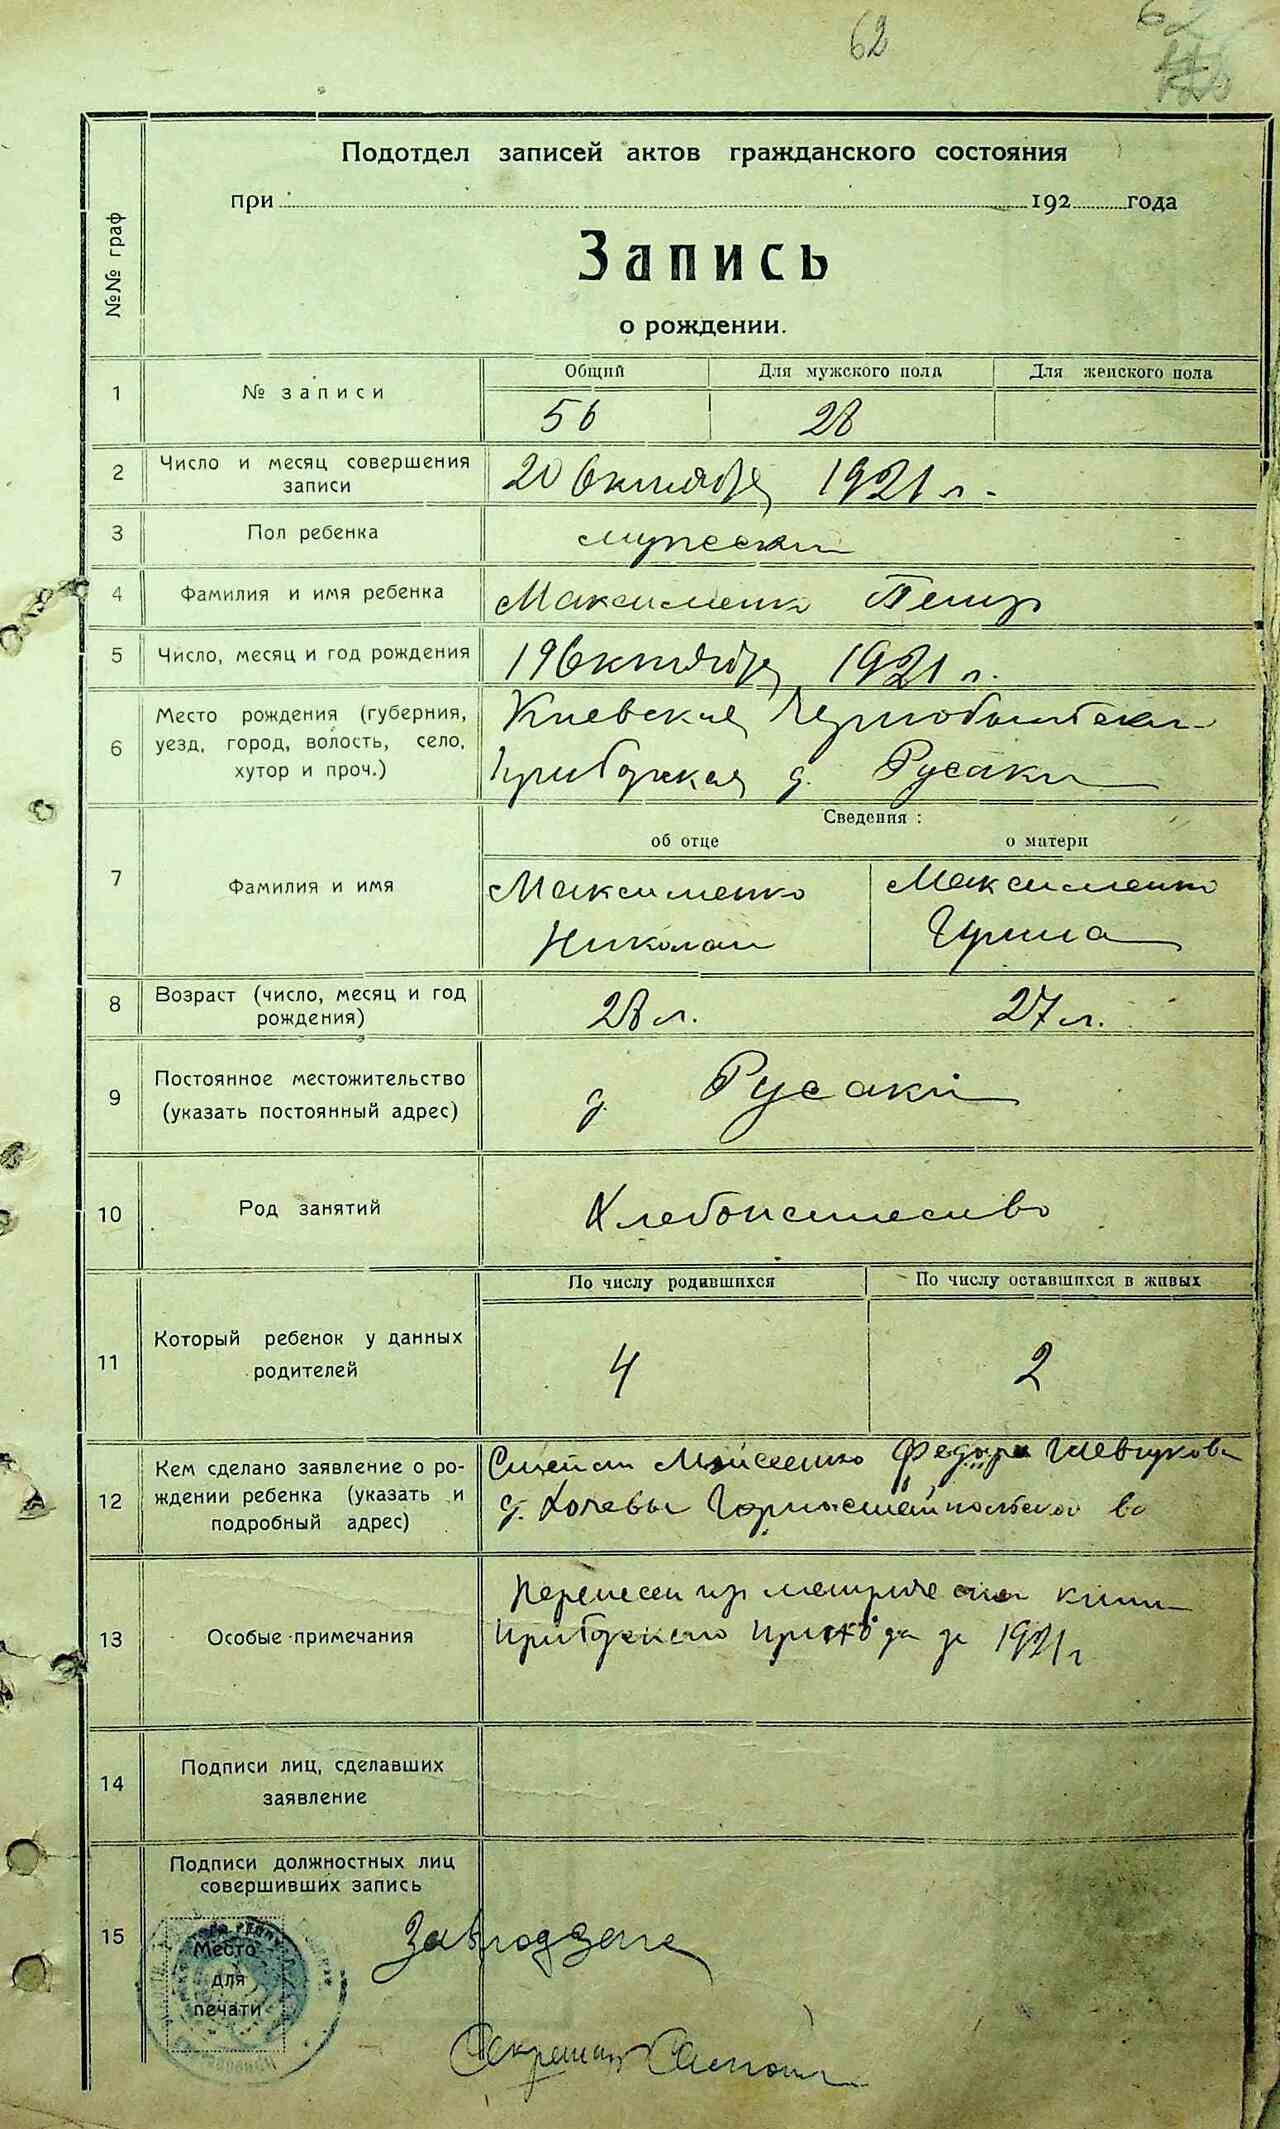 62
Подотдел записей актов гражданского состояния
при 192 года
№№ граф
Запись
о рождении.
1 № записи
Общий Для мужского пола Для женского пола
56 28
2 Число и месяц совершения записи
20 Октября 1921 г.
3 Пол ребенка
мужески
4 Фамилия и имя ребенка
Максименко Петр
5 Число, месяц и год рождения
19 Октября 1921 г.
6 Место рождения (губерния,
уезд, город, волость, село,
хутор и проч.)
Киевская Чернобыльская
д. Русаки
Сведения:
об отце о матери
7 Фамилия и имя
Максименко Максименко
Николай Ирина
8 Возраст (число, месяц и год
рождения)
28 л. 27 л.
9 Постоянное местожительство
(указать постоянный адрес)
д. Русаки
10 Род занятий
Хлебопашество
По числу родившихся По числу оставшихся в живых
11 Который ребенок у данных
родителей
4 2
12 Кем сделано заявление о ро-
ждении ребенка (указать и
подробный адрес)
Моисеенко Шевчукова
д.
13 Особые примечания
Перенесен из метрической книги
прихода за 1921 г
14 Подписи лиц, сделавших
заявление
15 Подписи должностных лиц
совершивших запись
Место
для
печати
Завподзаг
Секретарь